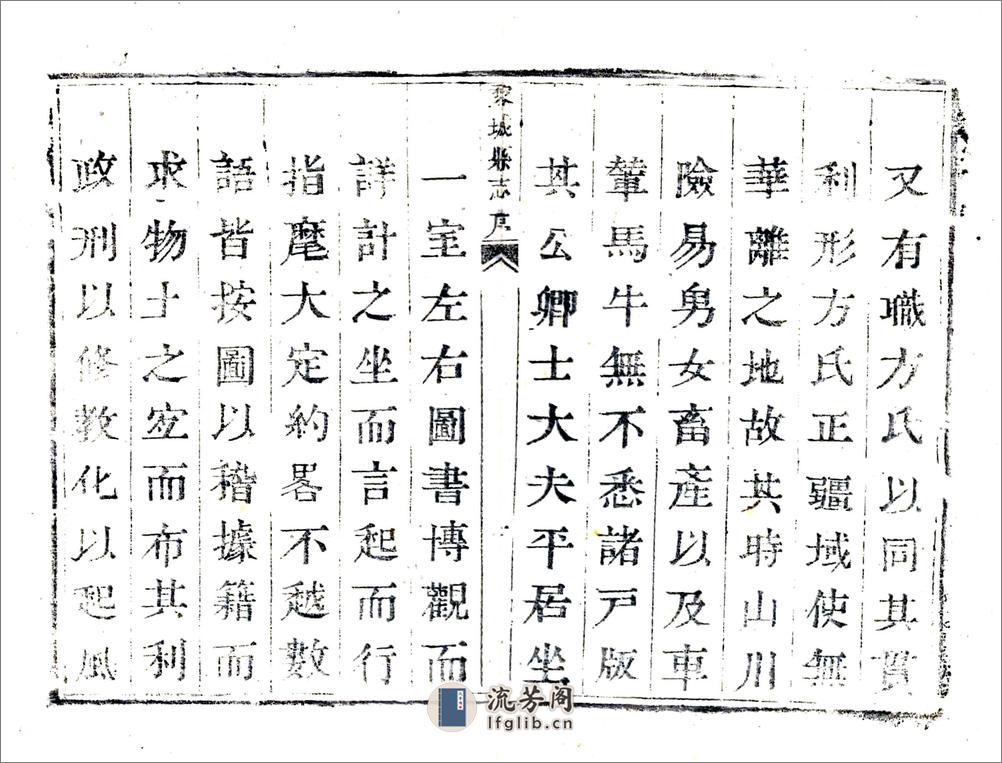 又有職方氏以同其貫
利形方氏正疆域使無
華離之地故其時山川
險易男女畜產以及車
輦馬牛無不悉諸戸版
其公卿士大夫平居坐
黎城縣志序
一室左右圖書博觀而
詳計之坐而言起而行
指麾大定約畧不越數
語皆按圖以稽據籍而
求物土之宐而布其利
政刑以修教化以起風
流芳阁
lfglib.cn